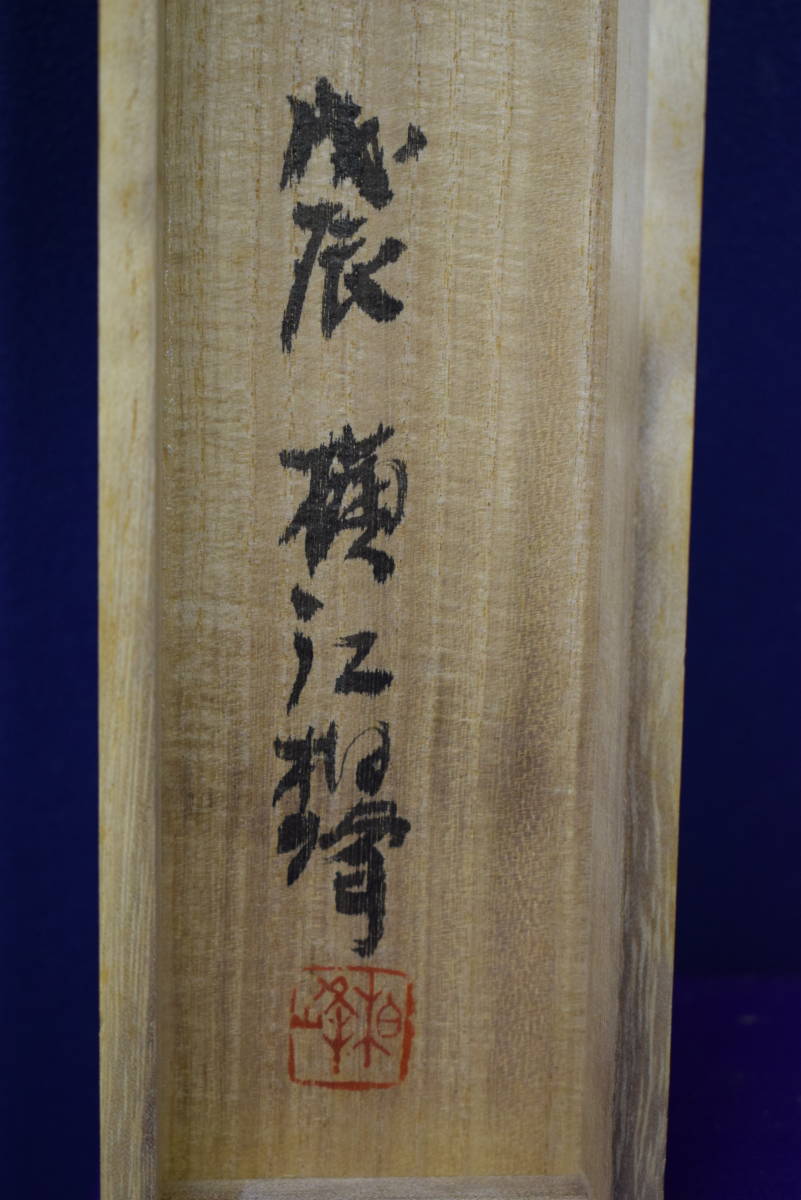 戊辰 横江柏峰
柏峰